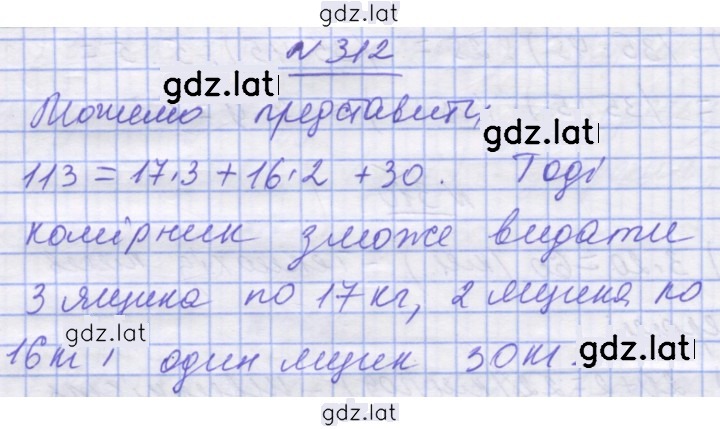 gdz.lat
N 312
gdz.lat
Можемо представити,
gdz.lat
113 = 17·3 + 16·2 + 30. Тоді
комірник зможе видати
3 ящика по 17 кг, 2 ящика по
gdz.lat
16кг і один ящик 30кг.
gdz.lat
gdz.lat